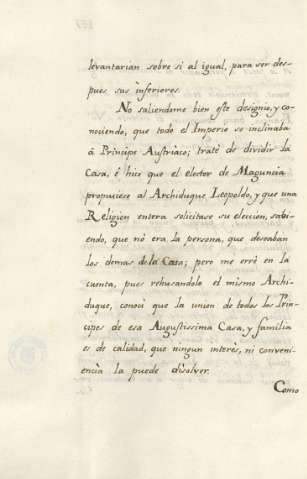 levantarian sobre si al igual, para ser des-
pues sus inferiores.
No saliendome bien este designio, y co-
nociendo, que todo el Imperio se inclinaba
á Principe Austriaco; traté de dividir la
Casa, é hice que el elector de Maguncia
propusiese al Archiduque Leopoldo, y que una
Religion entera solicitase su eleccion, sabi-
endo, que nó era la persona, que deseaban
los demas de la Casa; pero me erré en la
cuenta, pues rehusandolo el mismo Archi-
duque, conocí que la union de todos los Prin-
cipes de esa Augustissima Casa, y familia
es de calidad, que ningun interès, ni conveni-
encia la puede disolver.
Como